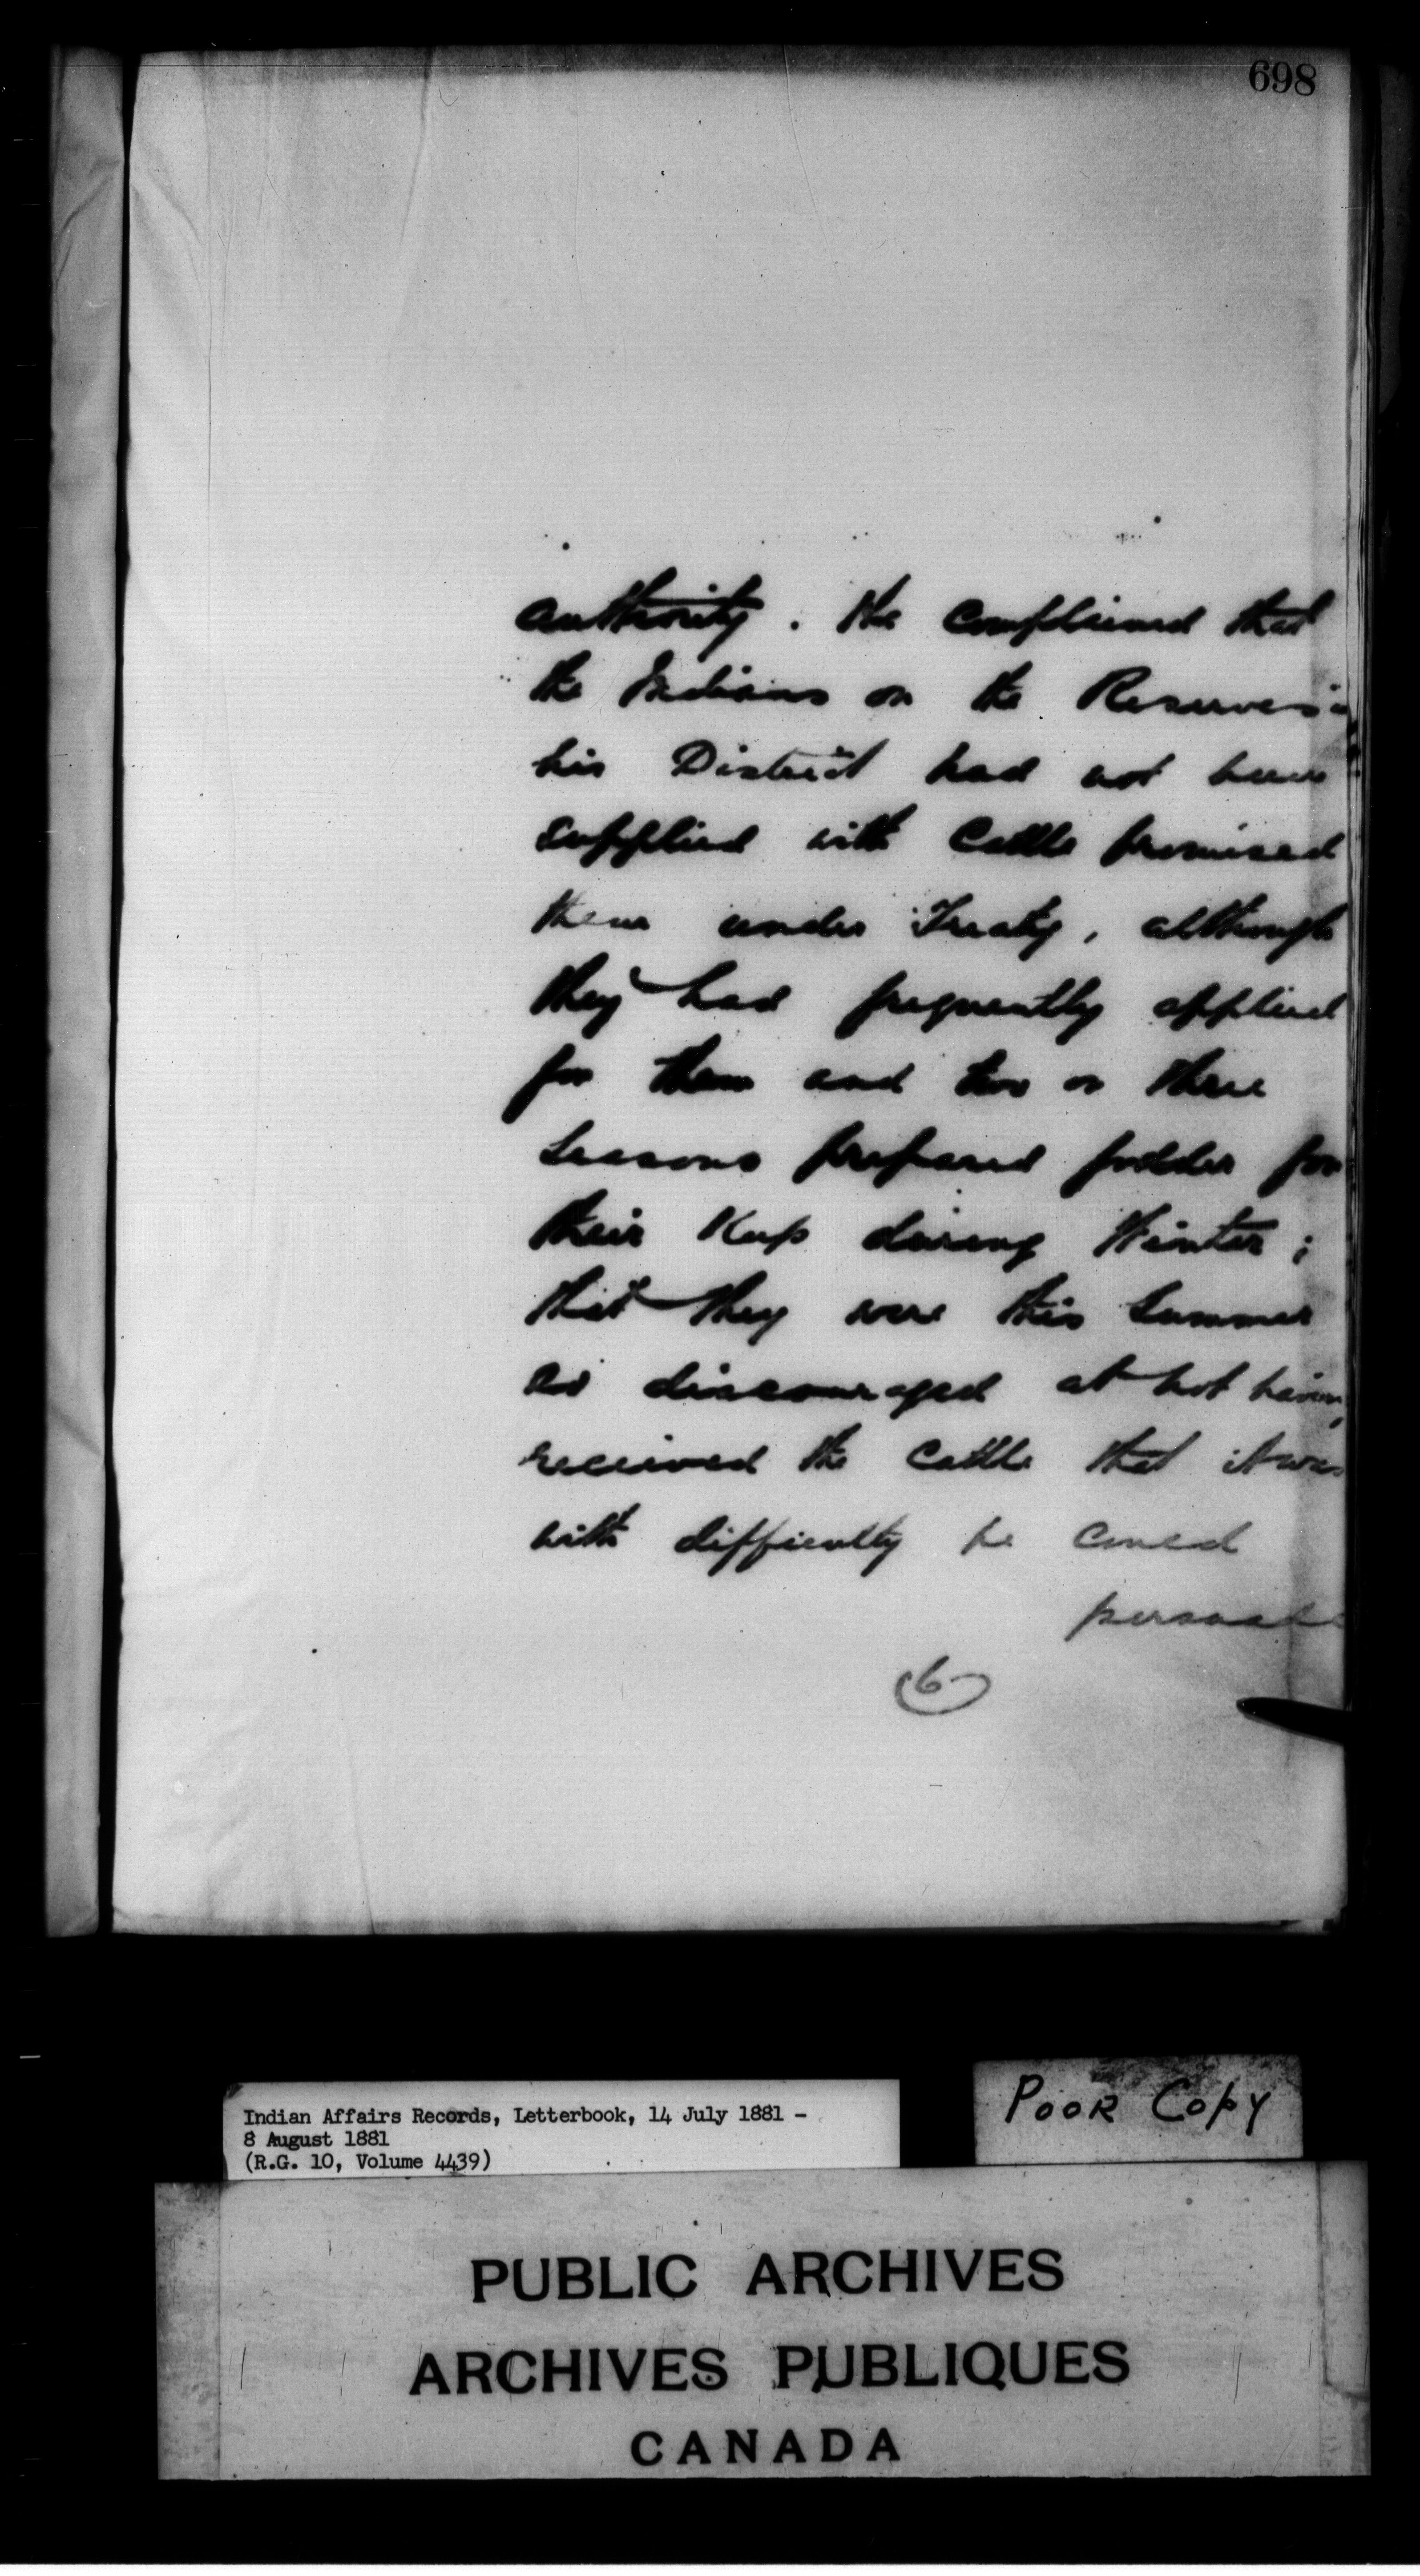 698
authority. He complained that
the Indians on the Reserves in
his District had not been
supplied with Cattle promised
them under Treaty, although
they had frequently applied
for them and two or three
Seasons prepared fodder for
their Keep during Winter;
that they were this Summer
so discouraged at not having
received the Cattle that it was
with difficulty he could
persuade
(6)
Indian Affairs Records, Letterbook, 14 July 1881 -
8 August 1881
(R.G. 10, Volume 4439)
POOR COPY
PUBLIC ARCHIVES
ARCHIVES PUBLIQUES
CANADA